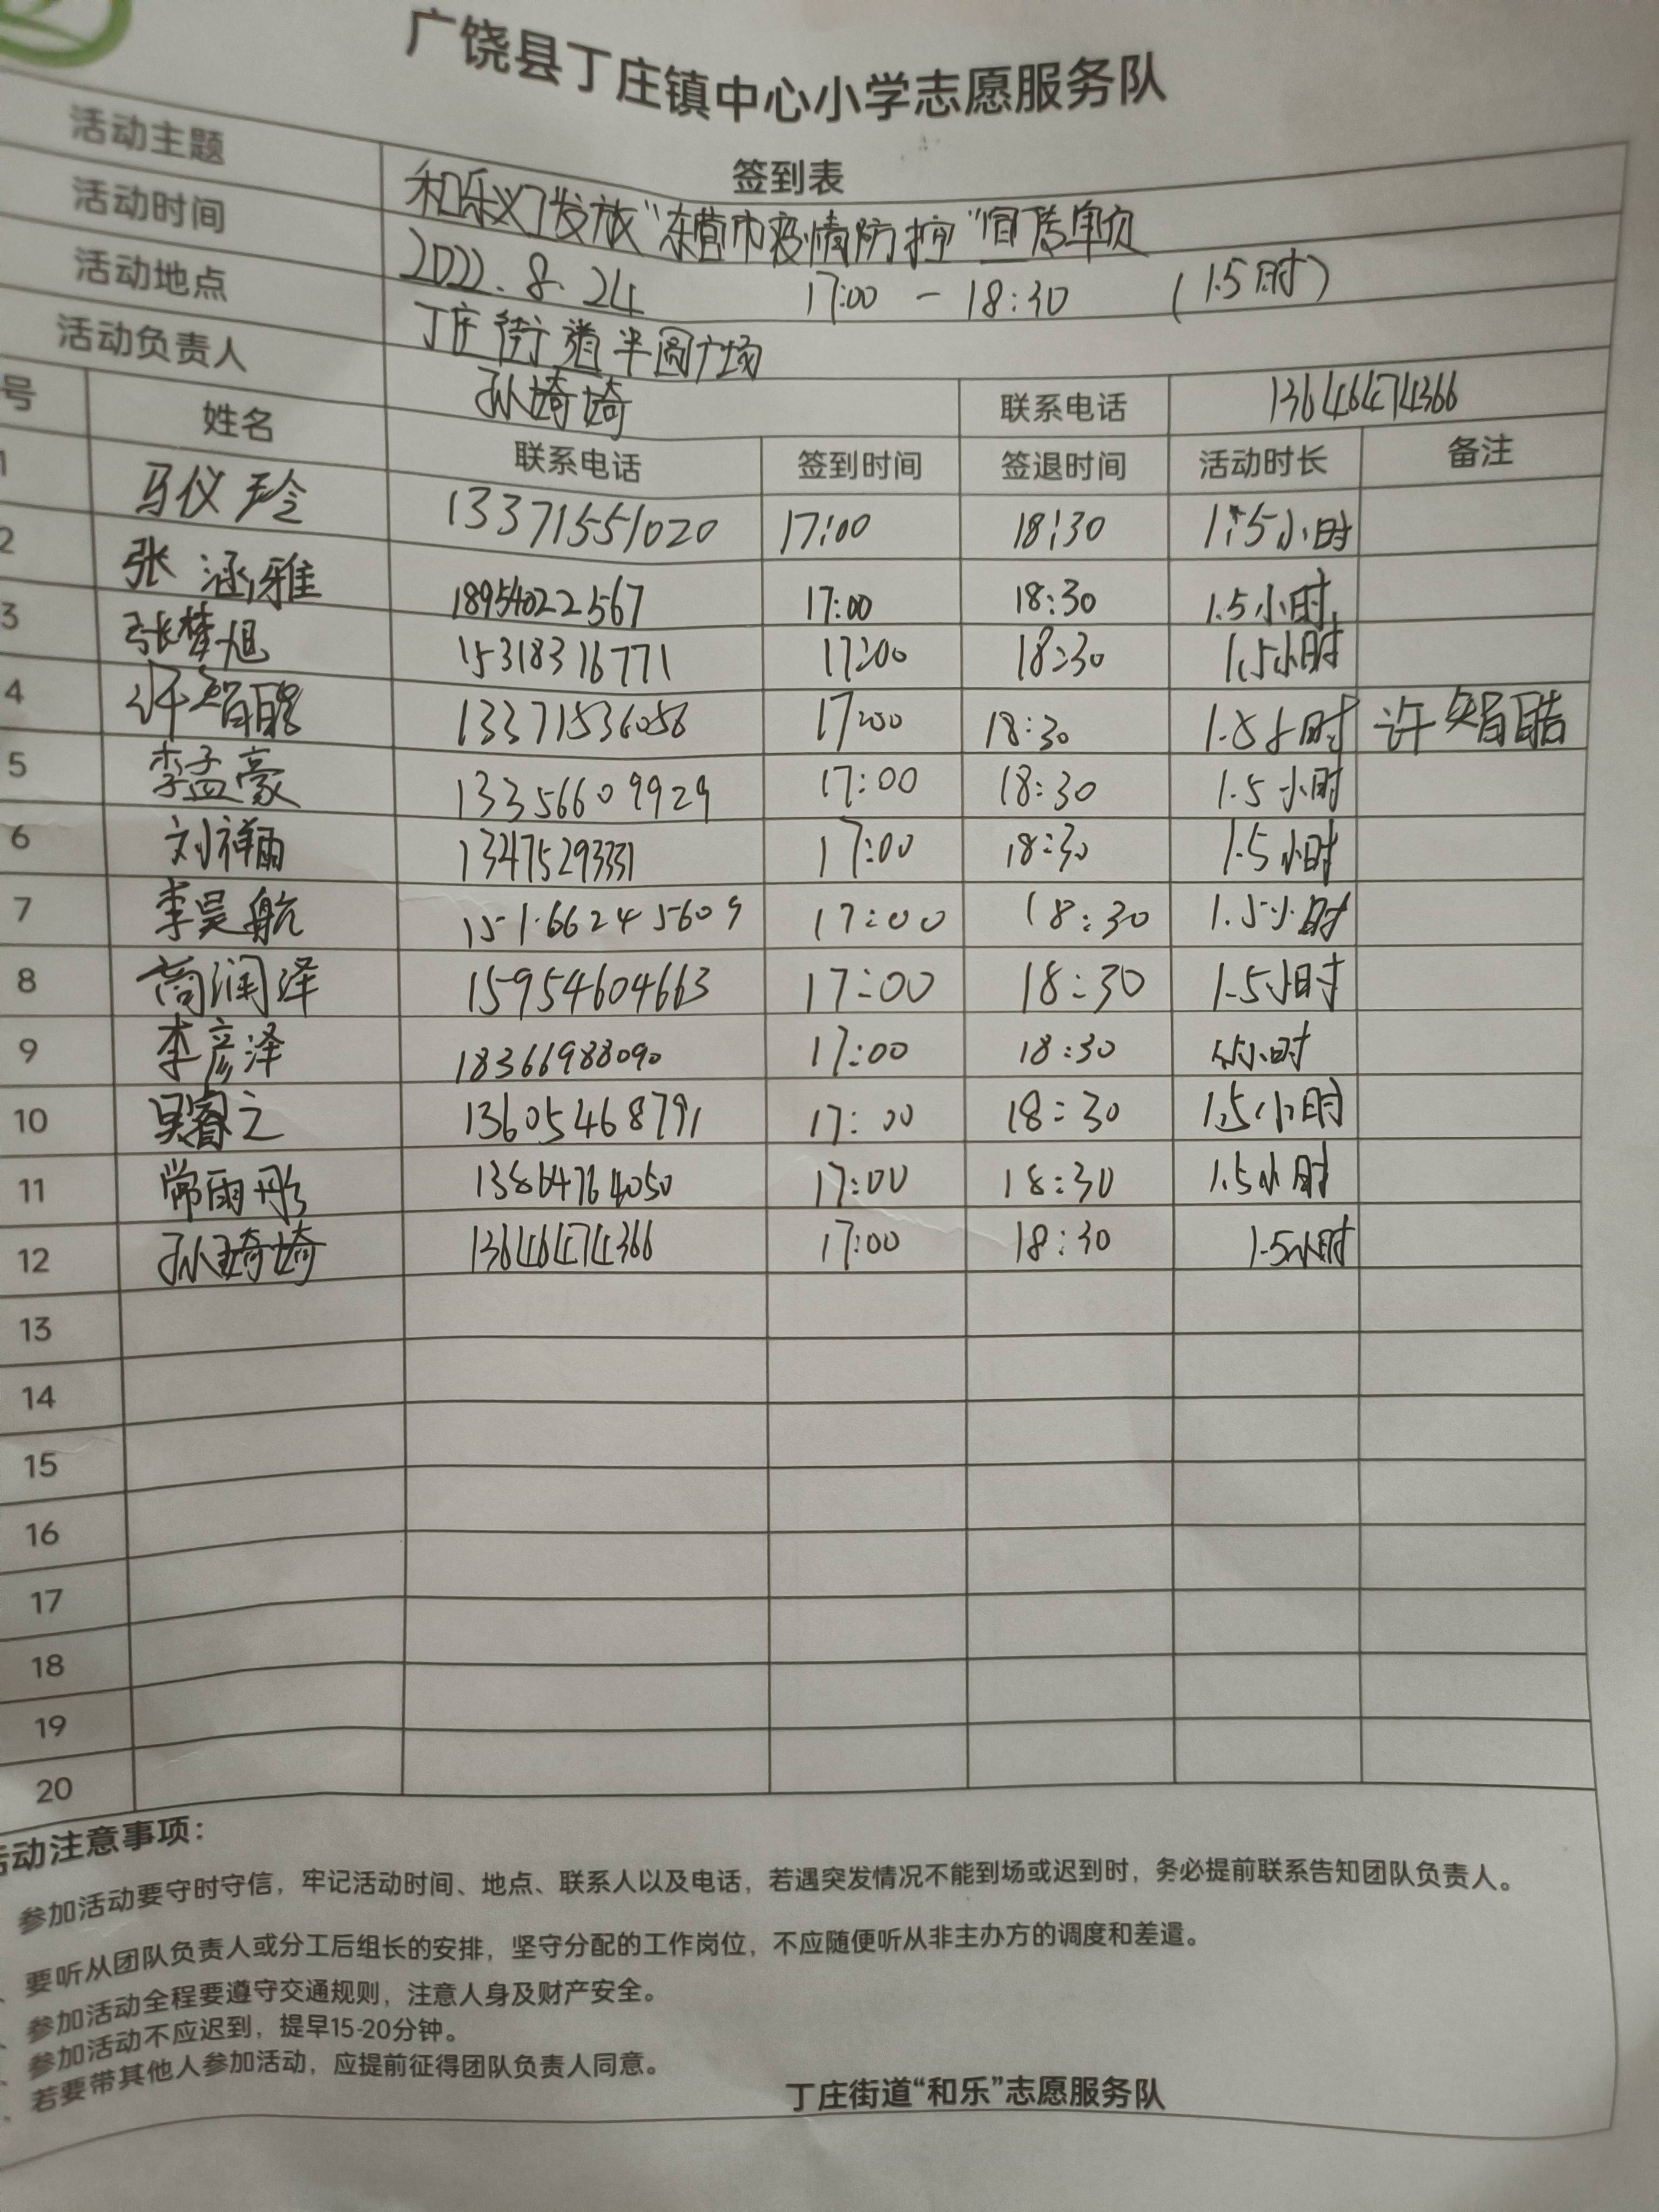 广饶县丁庄镇中心小学志愿服务队
签到表
活动主题 和乐义工发放“东营市疫情防控”宣传单页
活动时间 2022.8.24 17:00 - 18:30 (1.5时)
活动地点 丁庄街道半圆广场
活动负责人 孙埼埼 联系电话 13646474366
号 姓名 联系电话 签到时间 签退时间 活动时长 备注
1 马仪玲 13371551020 17:00 18:30 1.5小时
2 张涵雅 18954022567 17:00 18:30 1.5小时
3 张梦旭 15318316771 17:00 18:30 1.5小时
4 许智酷 13371536058 17:00 18:30 1.5小时 许智酷
5 李孟豪 13356609929 17:00 18:30 1.5小时
6 刘祥雨 13475293331 17:00 18:30 1.5小时
7 李昊航 15166245609 17:00 18:30 1.5小时
8 商润泽 15954604663 17:00 18:30 1.5小时
9 李彦泽 18366988090 17:00 18:30 小时
10 吴睿之 13605468791 17:00 18:30 1.5小时
11 常雨彤 13864764050 17:00 18:30 1.5小时
12 孙埼埼 13646474366 17:00 18:30 1.5小时
13
14
15
16
17
18
19
20
活动注意事项：
参加活动要守时守信，牢记活动时间、地点、联系人以及电话，若遇突发情况不能到场或迟到时，务必提前联系告知团队负责人。
要听从团队负责人或分工后组长的安排，坚守分配的工作岗位，不应随便听从非主办方的调度和差遣。
参加活动全程要遵守交通规则，注意人身及财产安全。
参加活动不应迟到，提早15-20分钟。
若要带其他人参加活动，应提前征得团队负责人同意。
丁庄街道“和乐”志愿服务队